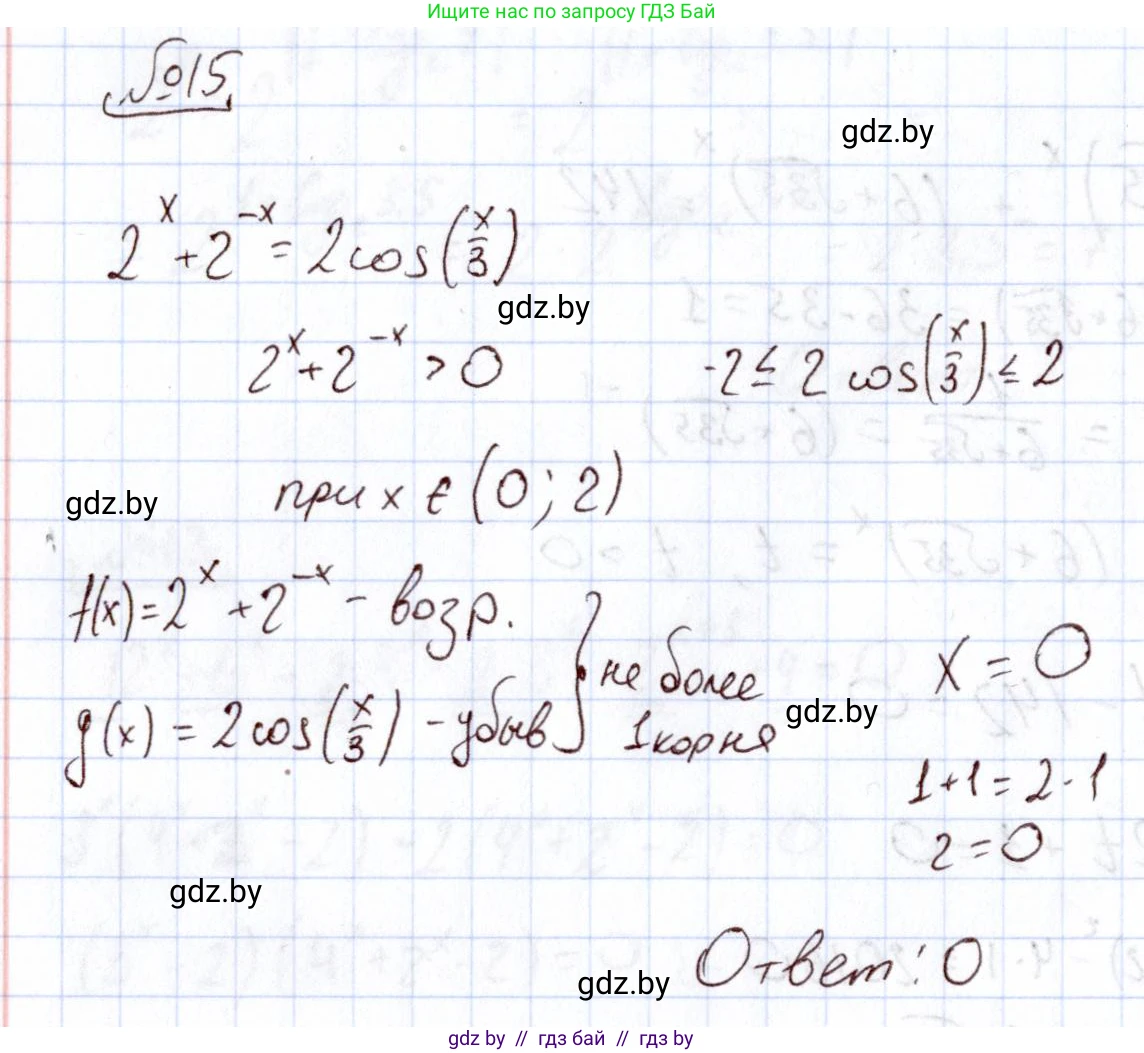 Ищите нас по запросу ГДЗ Бай
№15
gdz.by
2^x + 2^{-x} = 2cos(x/3)
gdz.by
2^x + 2^{-x} > 0    -2 ≤ 2 cos(x/3) ≤ 2
gdz.by
при x ∈ (0; 2)
f(x) = 2^x + 2^{-x} - возр.
не более
x = 0
g(x) = 2cos(x/3) - убыв
1 корня
gdz.by
1+1 = 2·1
2 = 0
gdz.by
Ответ: 0
gdz.by
gdz by // гдз бай // gdz by